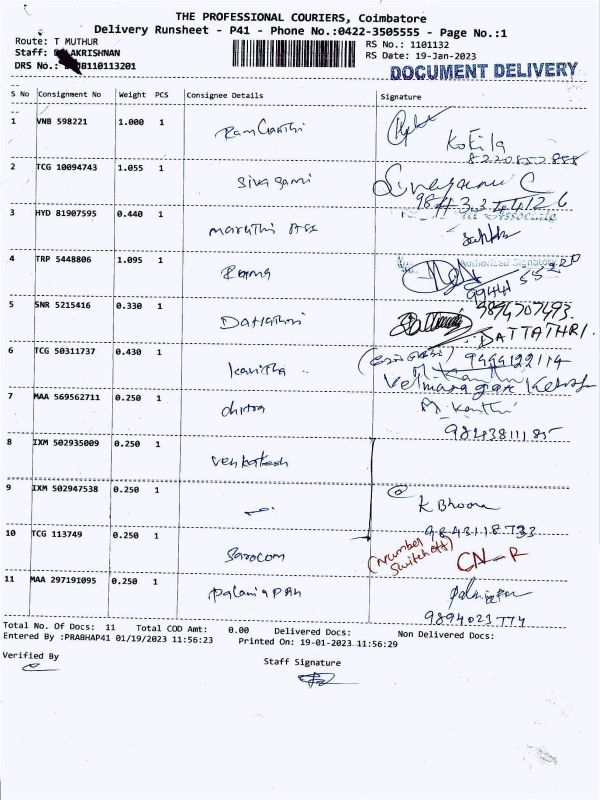 THE PROFESSIONAL COURIERS, Coimbatore
Delivery Runsheet - P41 - Phone No.:0422-3505555 - Page No.:1
Route: T MUTHUR
RS No.: 1101132
Staff: LAKRISHNAN
RS Date: 19-Jan-2023
DRS No.: B110113201
DOCUMENT DELIVERY
S No Consignment No Weight PCS Consignee Details Signature
1 VNB 598221 1.000 1
Kokila
2 TCG 10094743 1.055 1 Sivagami
3 HYD 81907595 0.440 1 Maruthi
4 TRP 5448806 1.095 1
Authorised Signatory
99441 55220
5 SNR 5215416 0.330 1 Dattathri
9894707493
DATTATHRI.
6 TCG 50311737 0.430 1 kavitha
9499122114
7 MAA 569562711 0.250 1 chitra
8 IXM 502935009 0.250 1 Venkatesh
9 IXM 502947538 0.250 1
K Bhoom
9843118733
10 TCG 113749 0.250 1
(Number Switch off)
CN-R
11 MAA 297191095 0.250 1 Palaniappan
9894023774
Total No. Of Docs: 11 Total COD Amt: 0.00 Delivered Docs: Non Delivered Docs:
Entered By :PRABHAP41 01/19/2023 11:56:23 Printed On: 19-01-2023 11:56:29
Verified By
Staff Signature